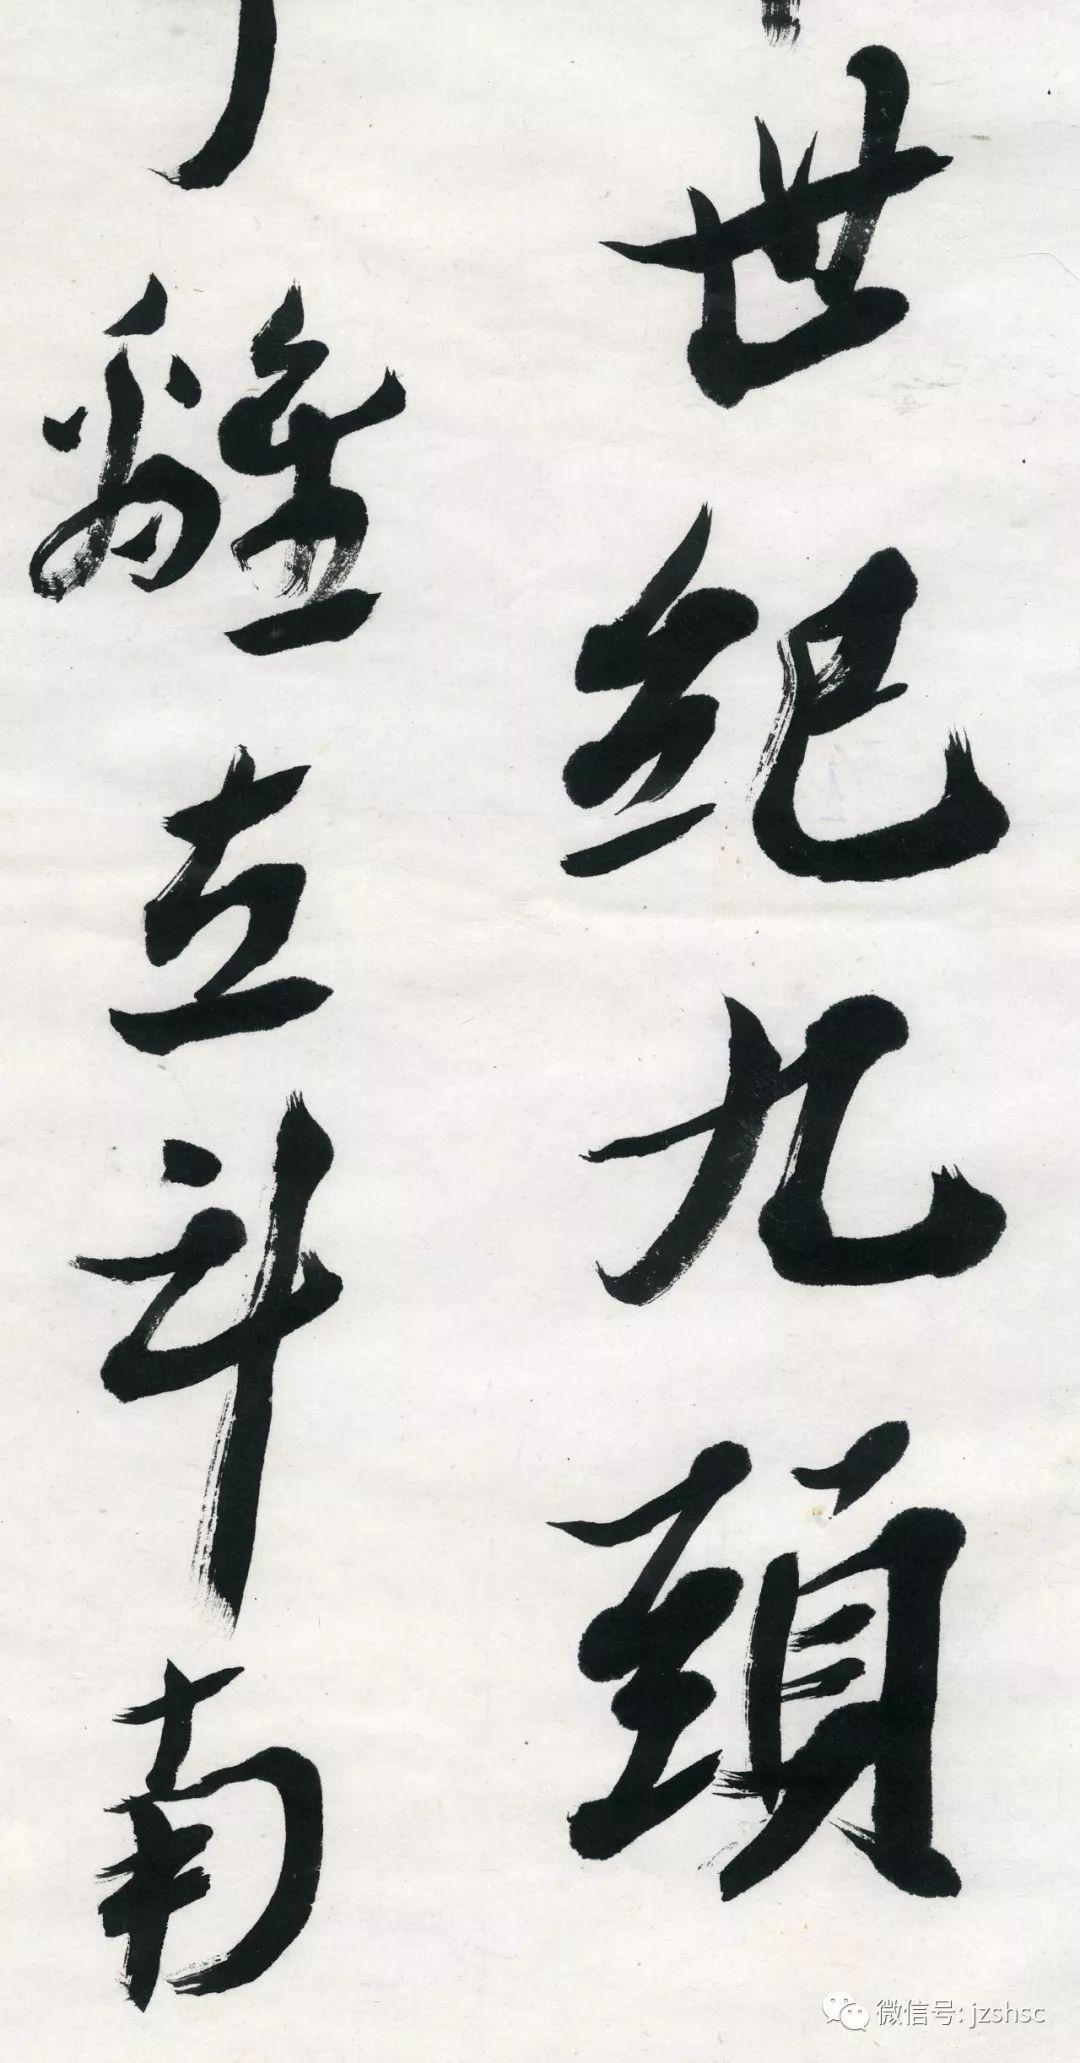 世紀九頭
離立斗南
微信号: jzshsc